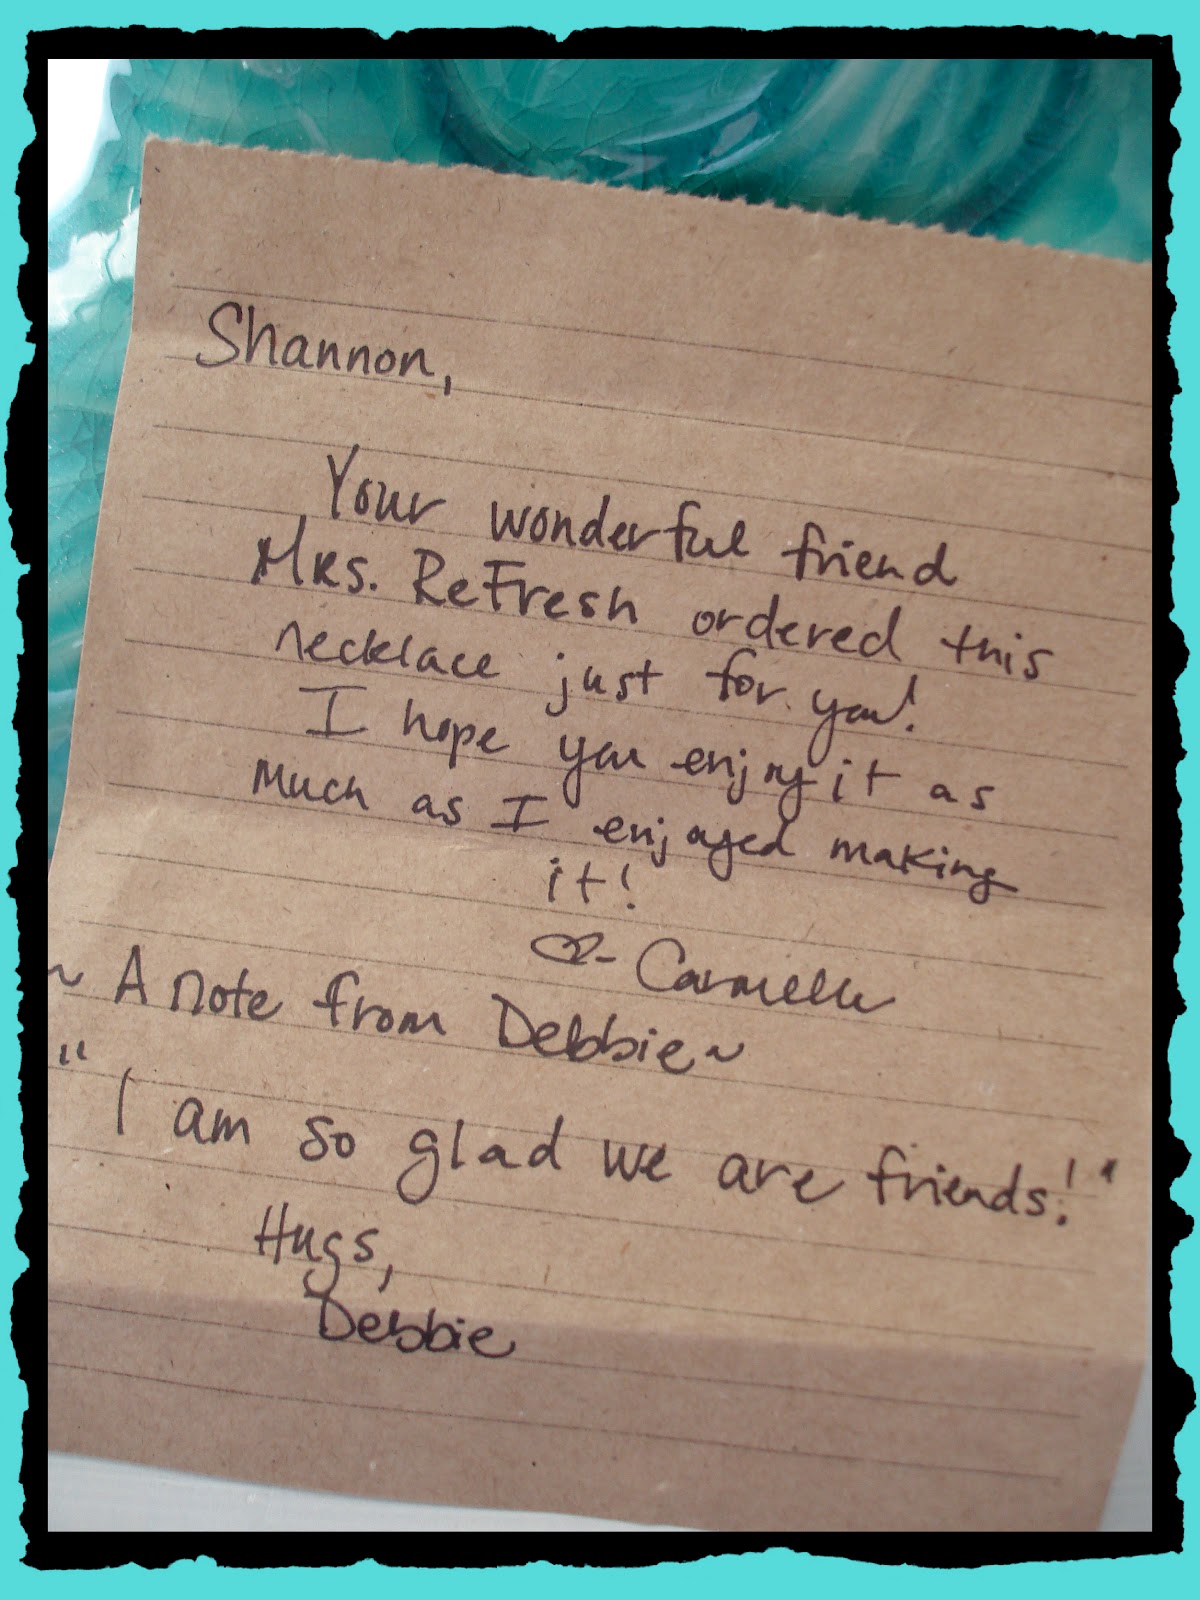 Shannon,
Your wonderful friend
Mrs. ReFresh ordered this
necklace just for you!
I hope you enjoy it as
much as I enjoyed making
it!
♡- Carmelle
~ A note from Debbie ~
" I am so glad we are friends! "
Hugs,
Debbie